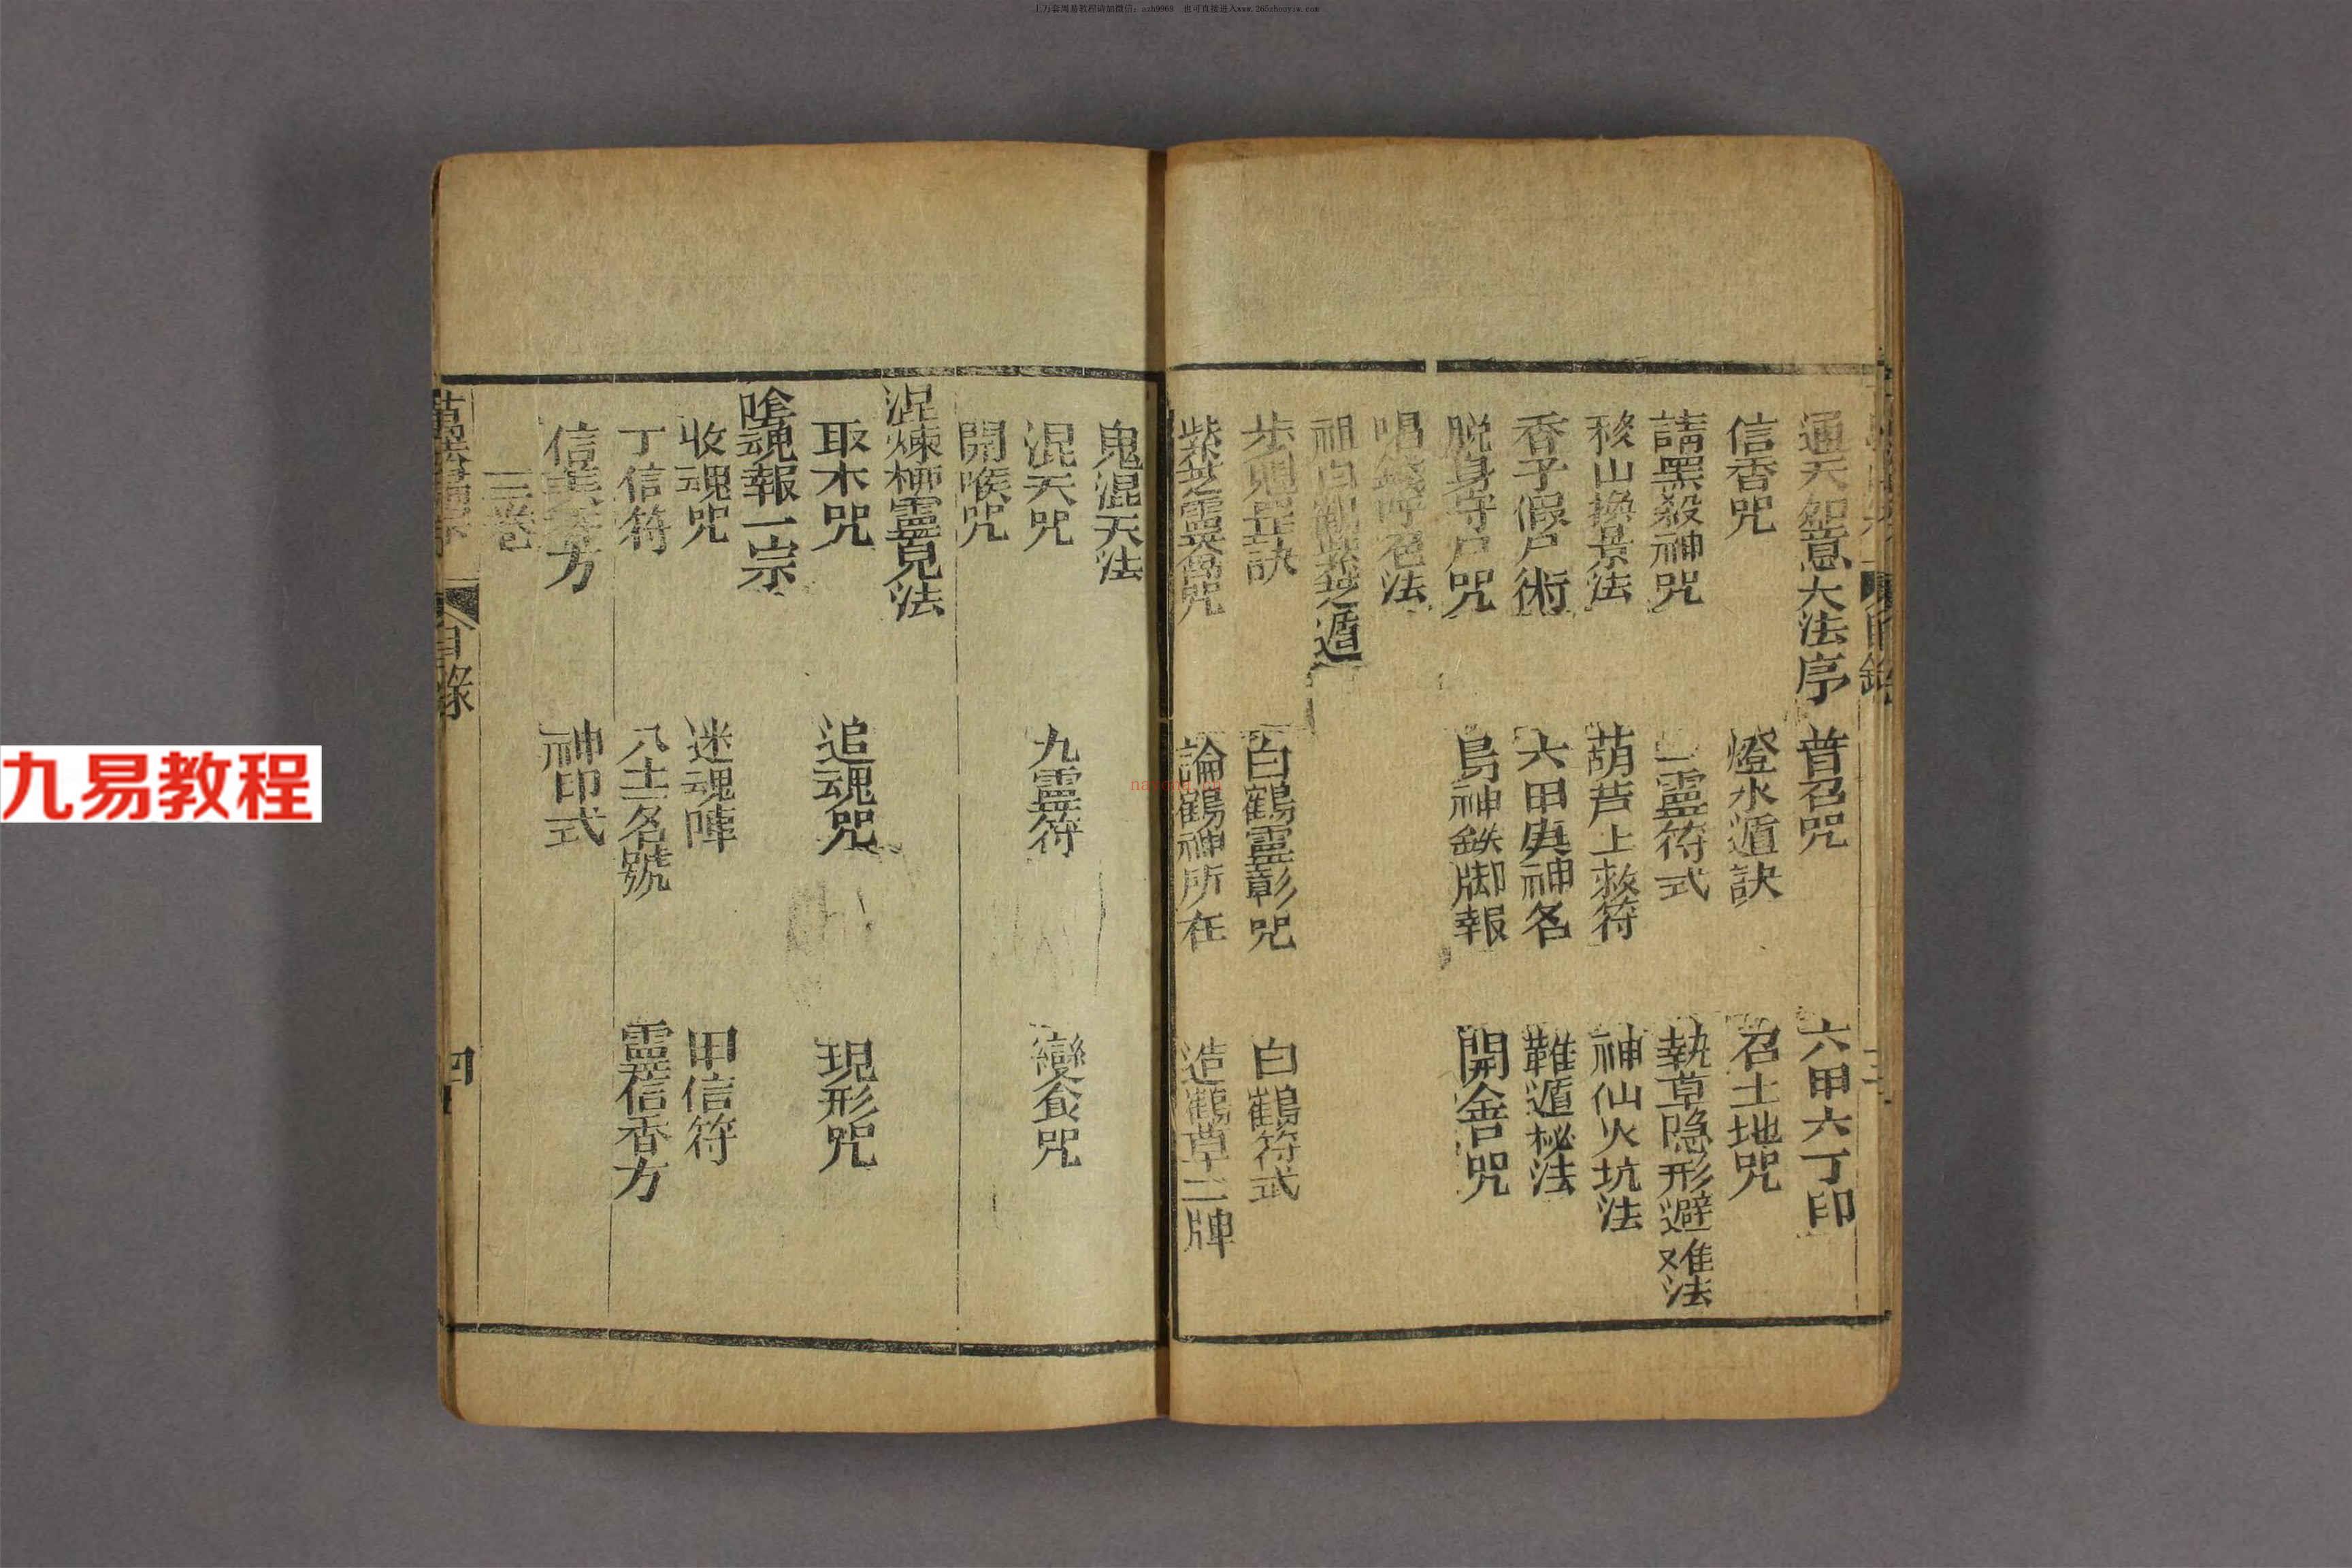 上万套周易教程请加微信：zxh9969　也可直接进入www.265zhouyiw.com
通天如意大法序　昔召咒　六甲六丁印
信香咒　燈水遁訣　召土地咒
請黑殺神咒　靈符式　執草隐形避难法
移山換景法　葫芦上救符　神仙火坑法
香子假尸術　六甲庚神名　難遁秘法
脱身守尸咒　鳥神鉄脚報　開舍咒
唱錢呼召法
祖白鶴紫芝遁
步魁罡訣　白鶴靈彰咒　白鶴符式
紫芝靈咒　論鶴神所在　造鶴草二牌
鬼混天法
混天咒　九靈符　變食咒
開喉咒
涅煉柳靈見法
取木咒　追魂咒　現形咒
魂報一宗
收魂咒　迷魂陣　甲信符
丁信符　八士名號　靈信香方
信香方　神印式
三卷
目錄　四
九易教程